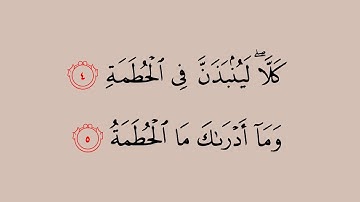 كَلَّاۖ لَيُنۢبَذَنَّ فِى ٱلْحُطَمَةِ ٤
وَمَآ أَدْرَىٰكَ مَا ٱلْحُطَمَةُ ٥